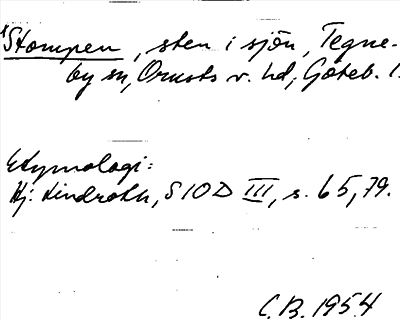 *Stompen, sten i sjön, Tegne-
by sn, Orusts v. hd, Göteb. l.
Etymologi:
Hj. Lindroth, SIOD III, s. 65, 79.
C.B. 1954